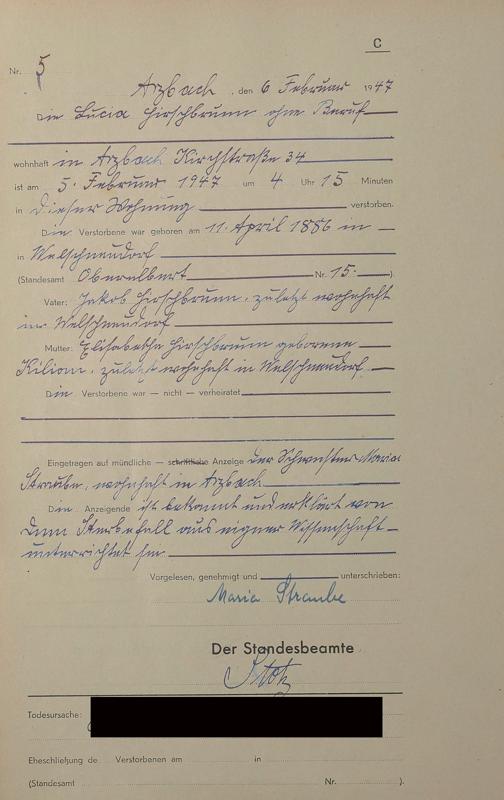 C
Nr. 5
Arzbach, den 6 Februar 1947
Die Lucia Hirschbrunn ohne Beruf
wohnhaft in Arzbach Kirchstraße 34
ist am 5. Februar 1947 um 4 Uhr 15 Minuten
in dieser Wohnung verstorben.
Die Verstorbene war geboren am 11. April 1886 in
in Welschneudorf
(Standesamt Oberelbert Nr. 15.)
Vater: Jakob Hirschbrunn, zuletzt wohnhaft
in Welschneudorf
Mutter: Elisabetha Hirschbrunn geborene
Kilian, zuletzt wohnhaft in Welschneudorf.
Die Verstorbene war — nicht — verheiratet
Eingetragen auf mündliche — schriftliche Anzeige der Schwester Maria
Straube, wohnhaft in Arzbach
Die Anzeigende ist bekannt und erklärt von
dem Sterbefall aus eigner Wissenschaft
unterrichtet sein
Vorgelesen, genehmigt und unterschrieben:
Maria Straube
Der Standesbeamte
Todesursache:
Eheschließung de Verstorbenen am in
(Standesamt Nr. ).